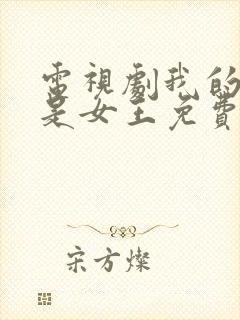 電視劇我的
是女王免費
宋方燦